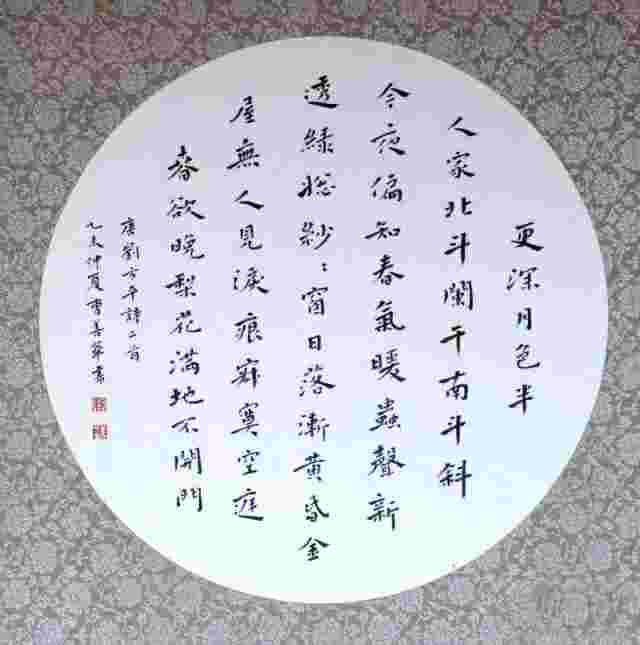 更深月色半
人家北斗闌干南斗斜
今夜偏知春氣暖蟲聲新
透綠牕紗〻窗日落漸黃昏金
屋無人見淚痕寂寞空庭
春欲晚梨花滿地不開門
唐劉方平詩二首
乙未仲夏曹善華書